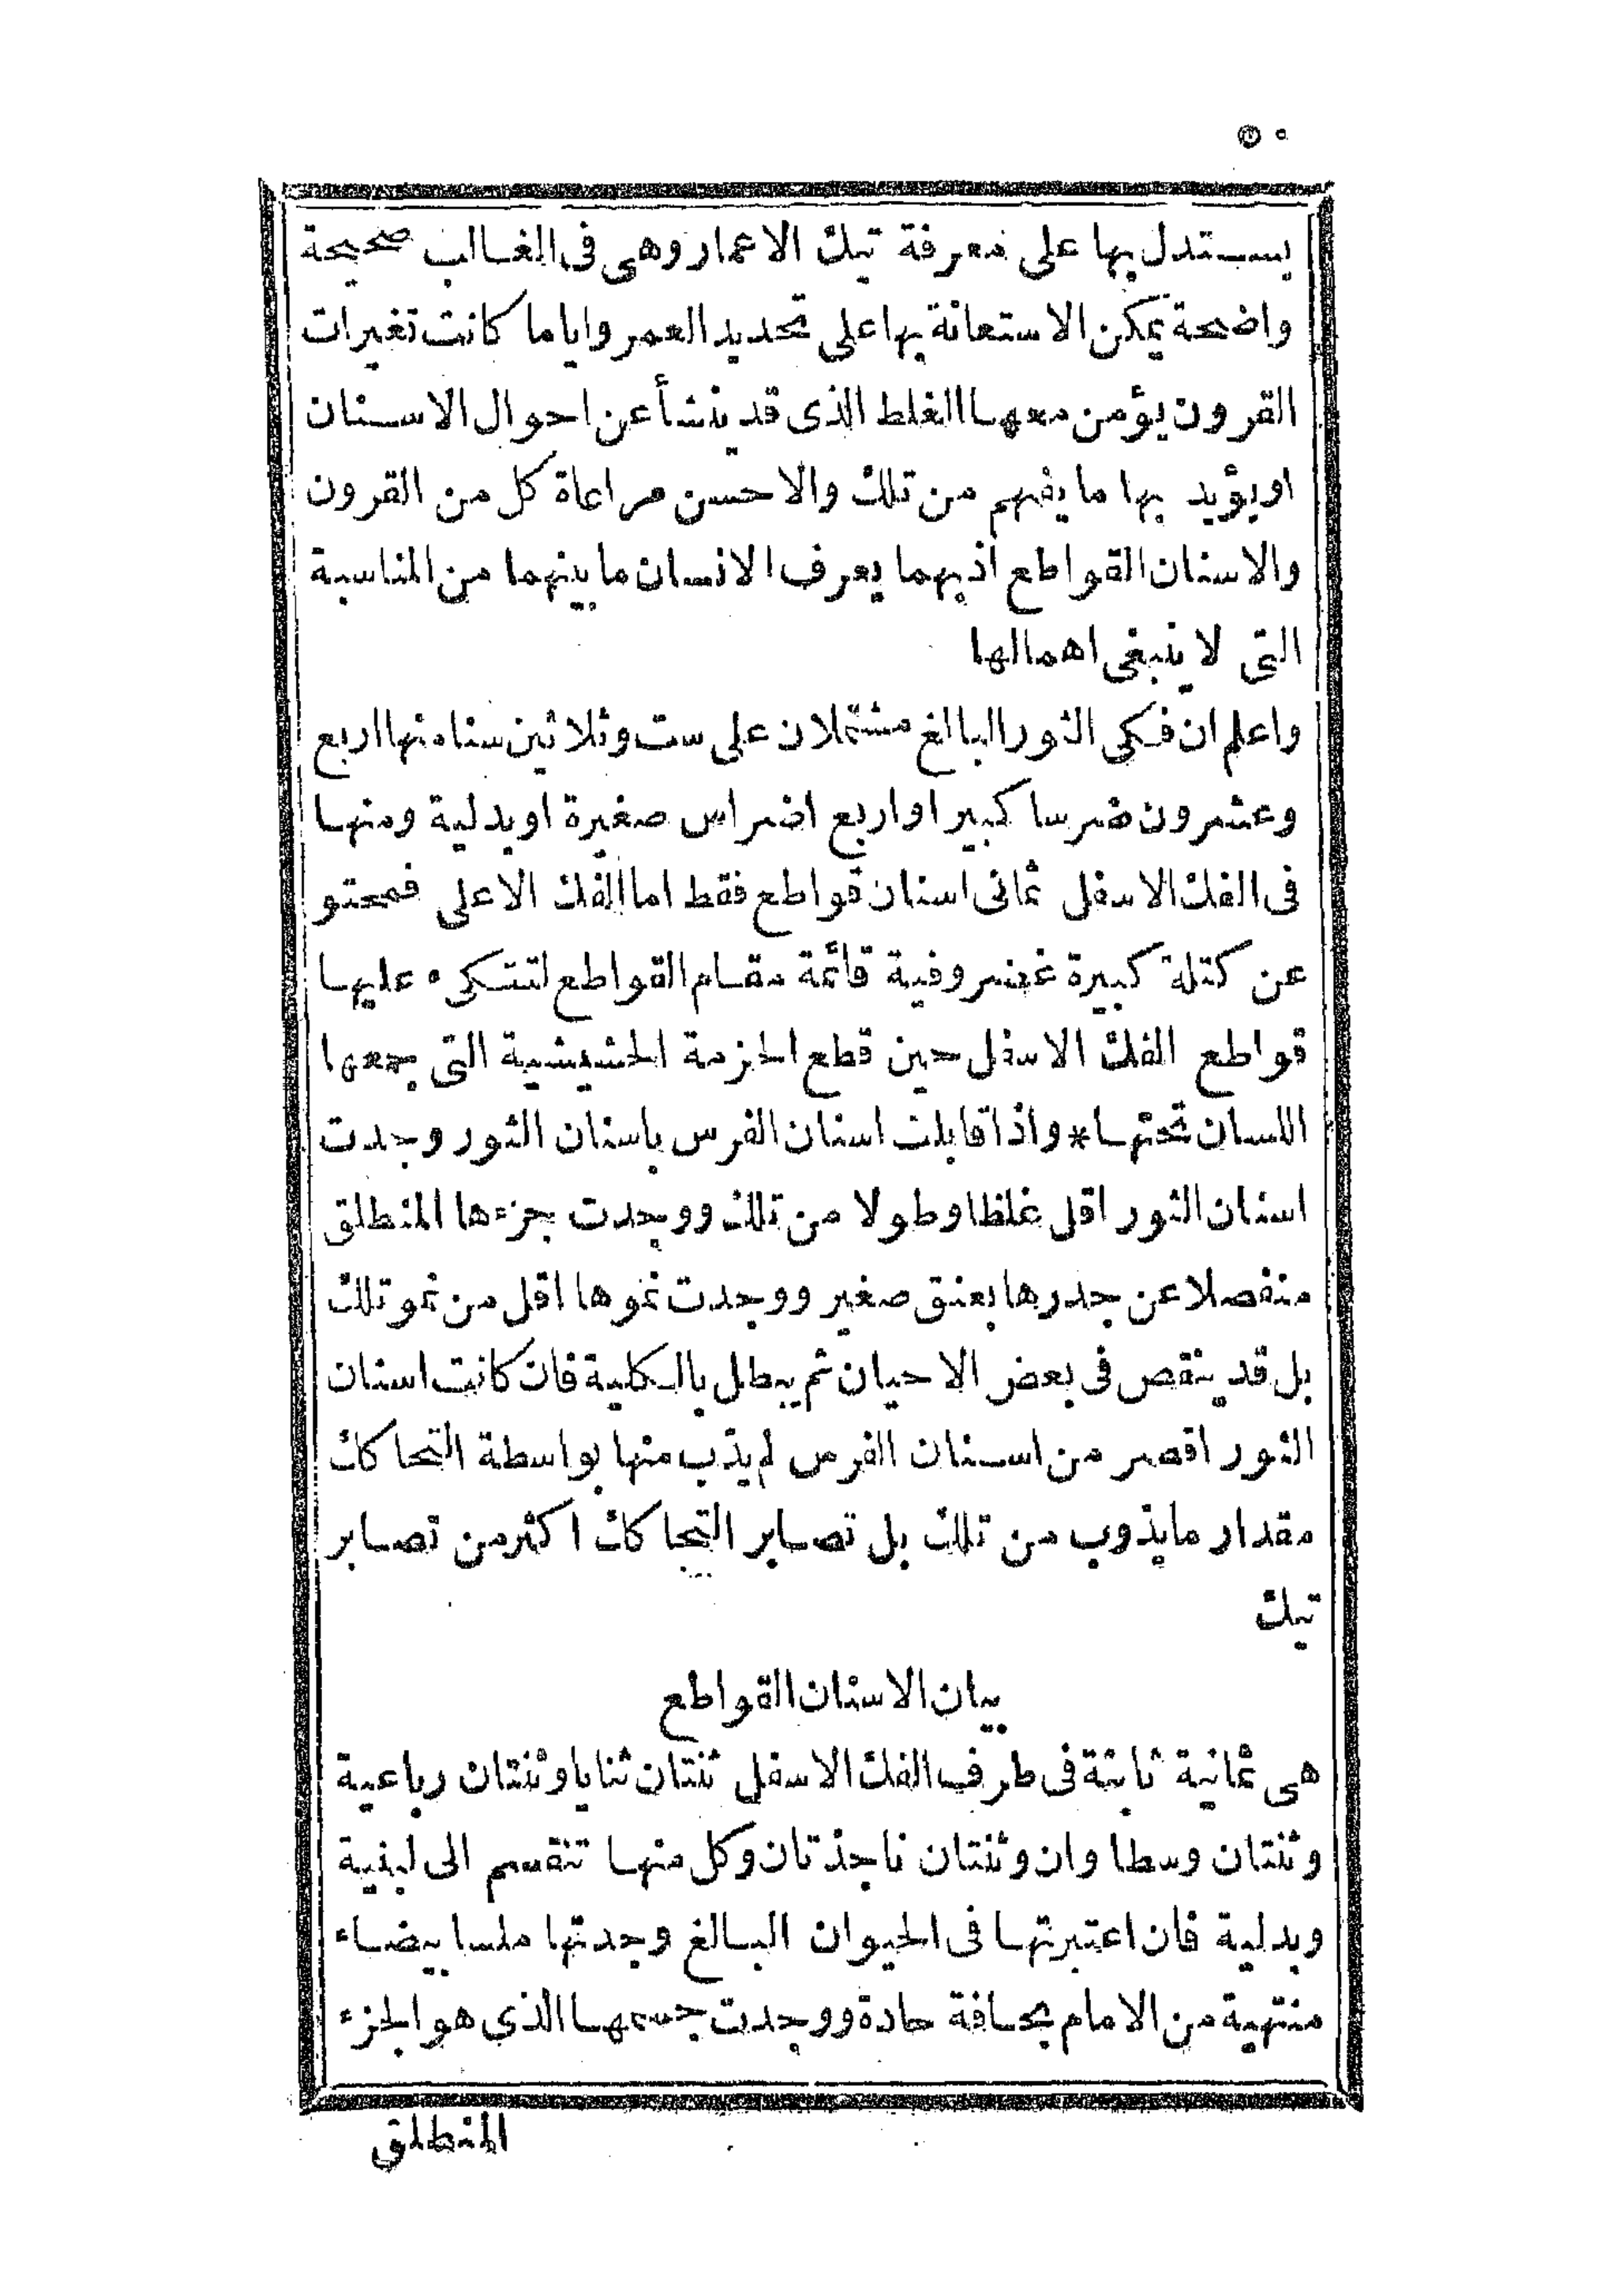 ٥٠
يستدل بها على معرفة تيك الاعمار وهى فى الغالب صحيحة
واضحة يمكن الاستعانة بها على تحديد العمر واياما كانت تغيرات
القرون يؤمن معها الغلط الذى قد ينشأ عن احوال الاسنان
او يؤيد بها ما يفهم من تلك والاحسن مراعاة كل من القرون
والاسنان القواطع اذ بهما يعرف الانسان ما بينهما من المناسبة
التى لا ينبغى اهمالها
واعلم ان فكى الثور البالغ مشتملان على ست وثلاثين سنا منها اربع
وعشرون ضرسا كبيرا واربع اضراس صغيرة او بدلية ومنها
فى الفك الاسفل ثمانى اسنان قواطع فقط اما الفك الاعلى فمحتو
عن كتلة كبيرة غضروفية قائمة مقام القواطع لتتكىء عليها
قواطع الفك الاسفل حين قطع الحزمة الحشيشية التى جمعها
اللسان تحتها * واذا قابلت اسنان الفرس باسنان الثور وجدت
اسنان الثور اقل غلظا وطولا من تلك ووجدت جزءها المنطلق
منفصلا عن جدرها بعنق صغير ووجدت نموها اقل من نمو تلك
بل قد ينقص فى بعض الاحيان ثم يبطل بالكلية فان كانت اسنان
الثور اقصر من اسنان الفرس لم يذب منها بواسطة التحاكك
مقدار ما يذوب من تلك بل تصابر التحاكك اكثر من تصابر
تيك
بيان الاسنان القواطع
هى ثمانية ثابتة فى طرف الفك الاسفل ثنتان ثنايا وثنتان رباعية
وثنتان وسطاوان وثنتان ناجذتان وكل منها تنقسم الى لبنية
وبدلية فان اعتبرتها فى الحيوان البالغ وجدتها ملسا بيضاء
منتهية من الامام بحافة حادة ووجدت جسمها الذى هو الجزء
المنطلق